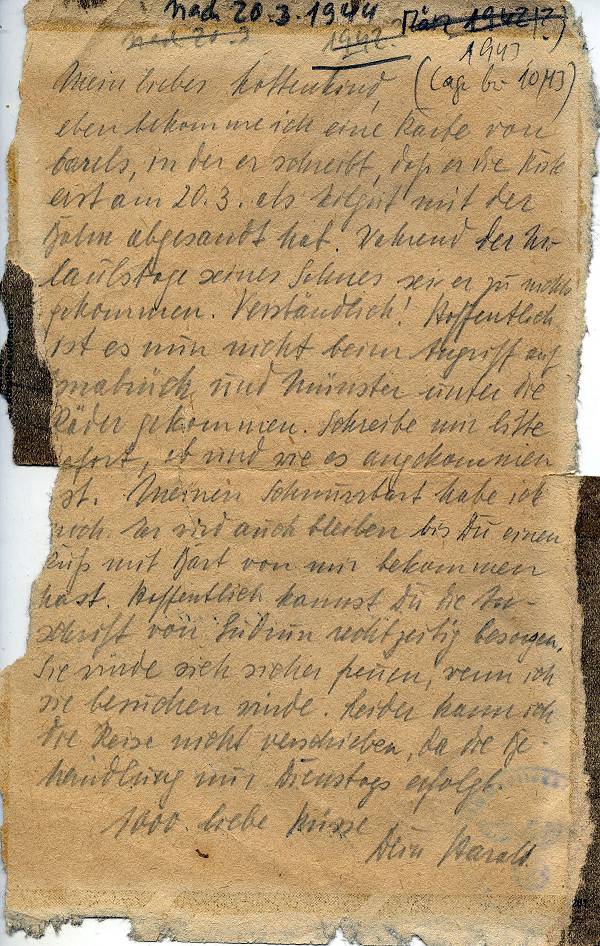 nach 20.3.1944 März 1942(?)
nach 20.3 1942. 1943
Mein liebes Kattenkind, (Lage bei 1043)
eben bekomme ich eine Karte von
Barels, in der er schreibt, daß er die Kiste
erst am 20.3. als Eilgut mit der
Bahn abgesandt hat. Während der Ur-
laubstage seines Sohnes sei er zu nichts
gekommen. Verständlich! Hoffentlich
ist es nun nicht beim Angriff auf
snabrück und Münster unter die
Räder gekommen. Schreibe mir bitte
sofort, ob und wie es angekommen
ist. Meinen Schnurrbart habe ich
noch. Er wird auch bleiben bis Du einen
Kuß mit Bart von mir bekommen
hast. Hoffentlich kannst Du die An-
schrift von Gudrun rechtzeitig besorgen.
Sie würde sich sicher freuen, wenn ich
sie besuchen würde. Leider kann ich
die Reise nicht verschieben, da die Be-
handlung nur Dienstags erfolgt.
1000 liebe Küsse
Dein Harald.